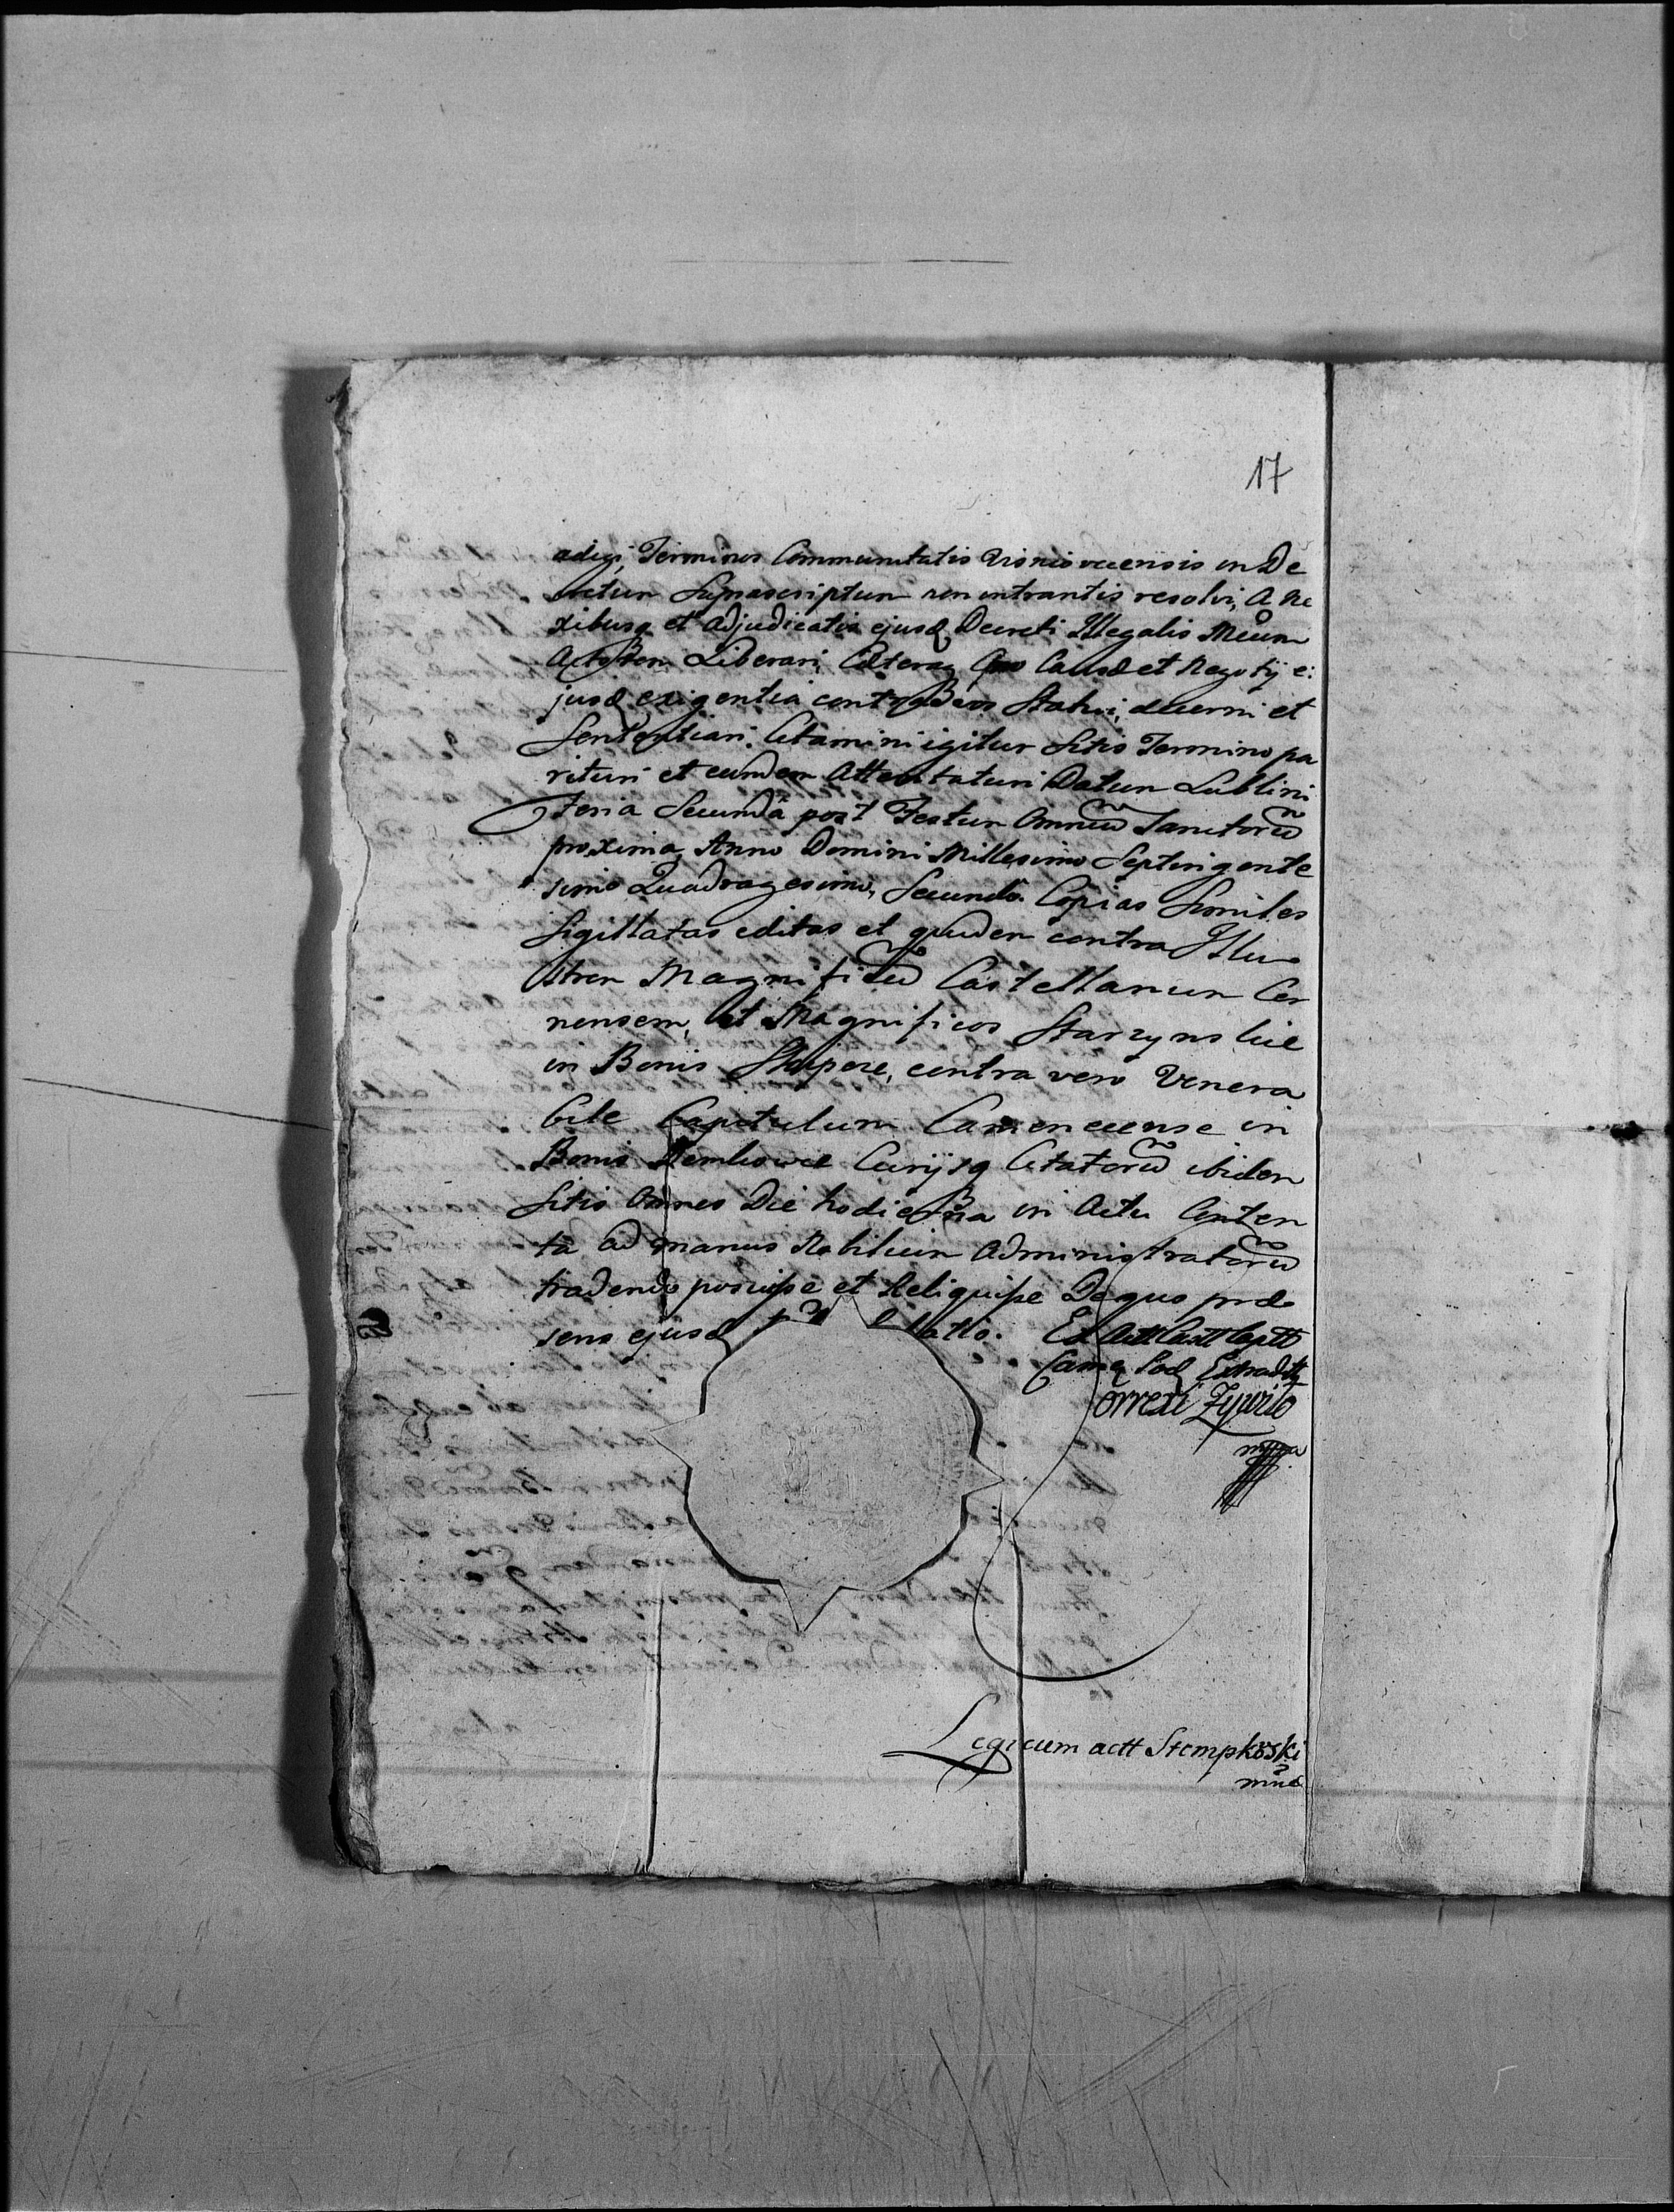 17
adigi, Terminos Communitatis Visniovecensis in De
cretum Suprascriptum non intrantis resolvi, A Ne
xibusq et Adjudicatis ejusd Decreti Illegalis Meum
Actorem Liberari, Cæteraq Pro Causæ et Negotij e:
jusd exigentia contra Vos Statui, decerni et
Sententiari. Citamini igitur Sitis Termino pa
rituri et eundem Attentaturi Datum Lublini
Feria Secunda post Festum Omniu Sanctoru
proxima, Anno Domini Millesimo Septingente
simo Quadragesimo, Secundo. Copias Similes
Sigillatas editas et quidem contra Illu
strem Magnificu Castellanum Cer
nensem, et Magnificos Starzynskie
in Bonis, contra vero Venera
bile Capitulum Camenecense in
Bonis Curijsq Citatoru ibidem
Sitis Omnes Die hodierna in Actu Conten
ta ad manus Nobilium Administratoru
tradendo posuisse et Reliquisse De quo præ
sens ejusd latio. Ex Actt Castt Captt
Came Pod Extraditt
Correxi Zywilt
mppa
Legi cum actt Stempkoski